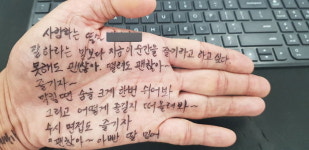 사랑하는
잘하라는 말보다 지금 이 순간을 즐기라고 하고 싶다
못해도 괜찮아. 떨려도 괜찮아~
즐기자~
막힐땐 숨을 크게 한번 쉬어봐
그리고 어떻게 풀릴지 떠올려봐~
수시 면접도 즐기자
괜찮아~ 아빠 딸